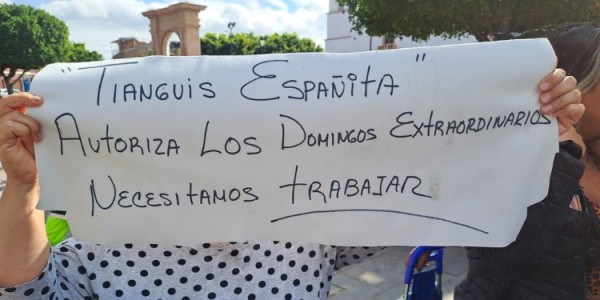 "Tianguis Españita"
Autoriza Los Domingos Extraordinarios
Necesitamos trabajar